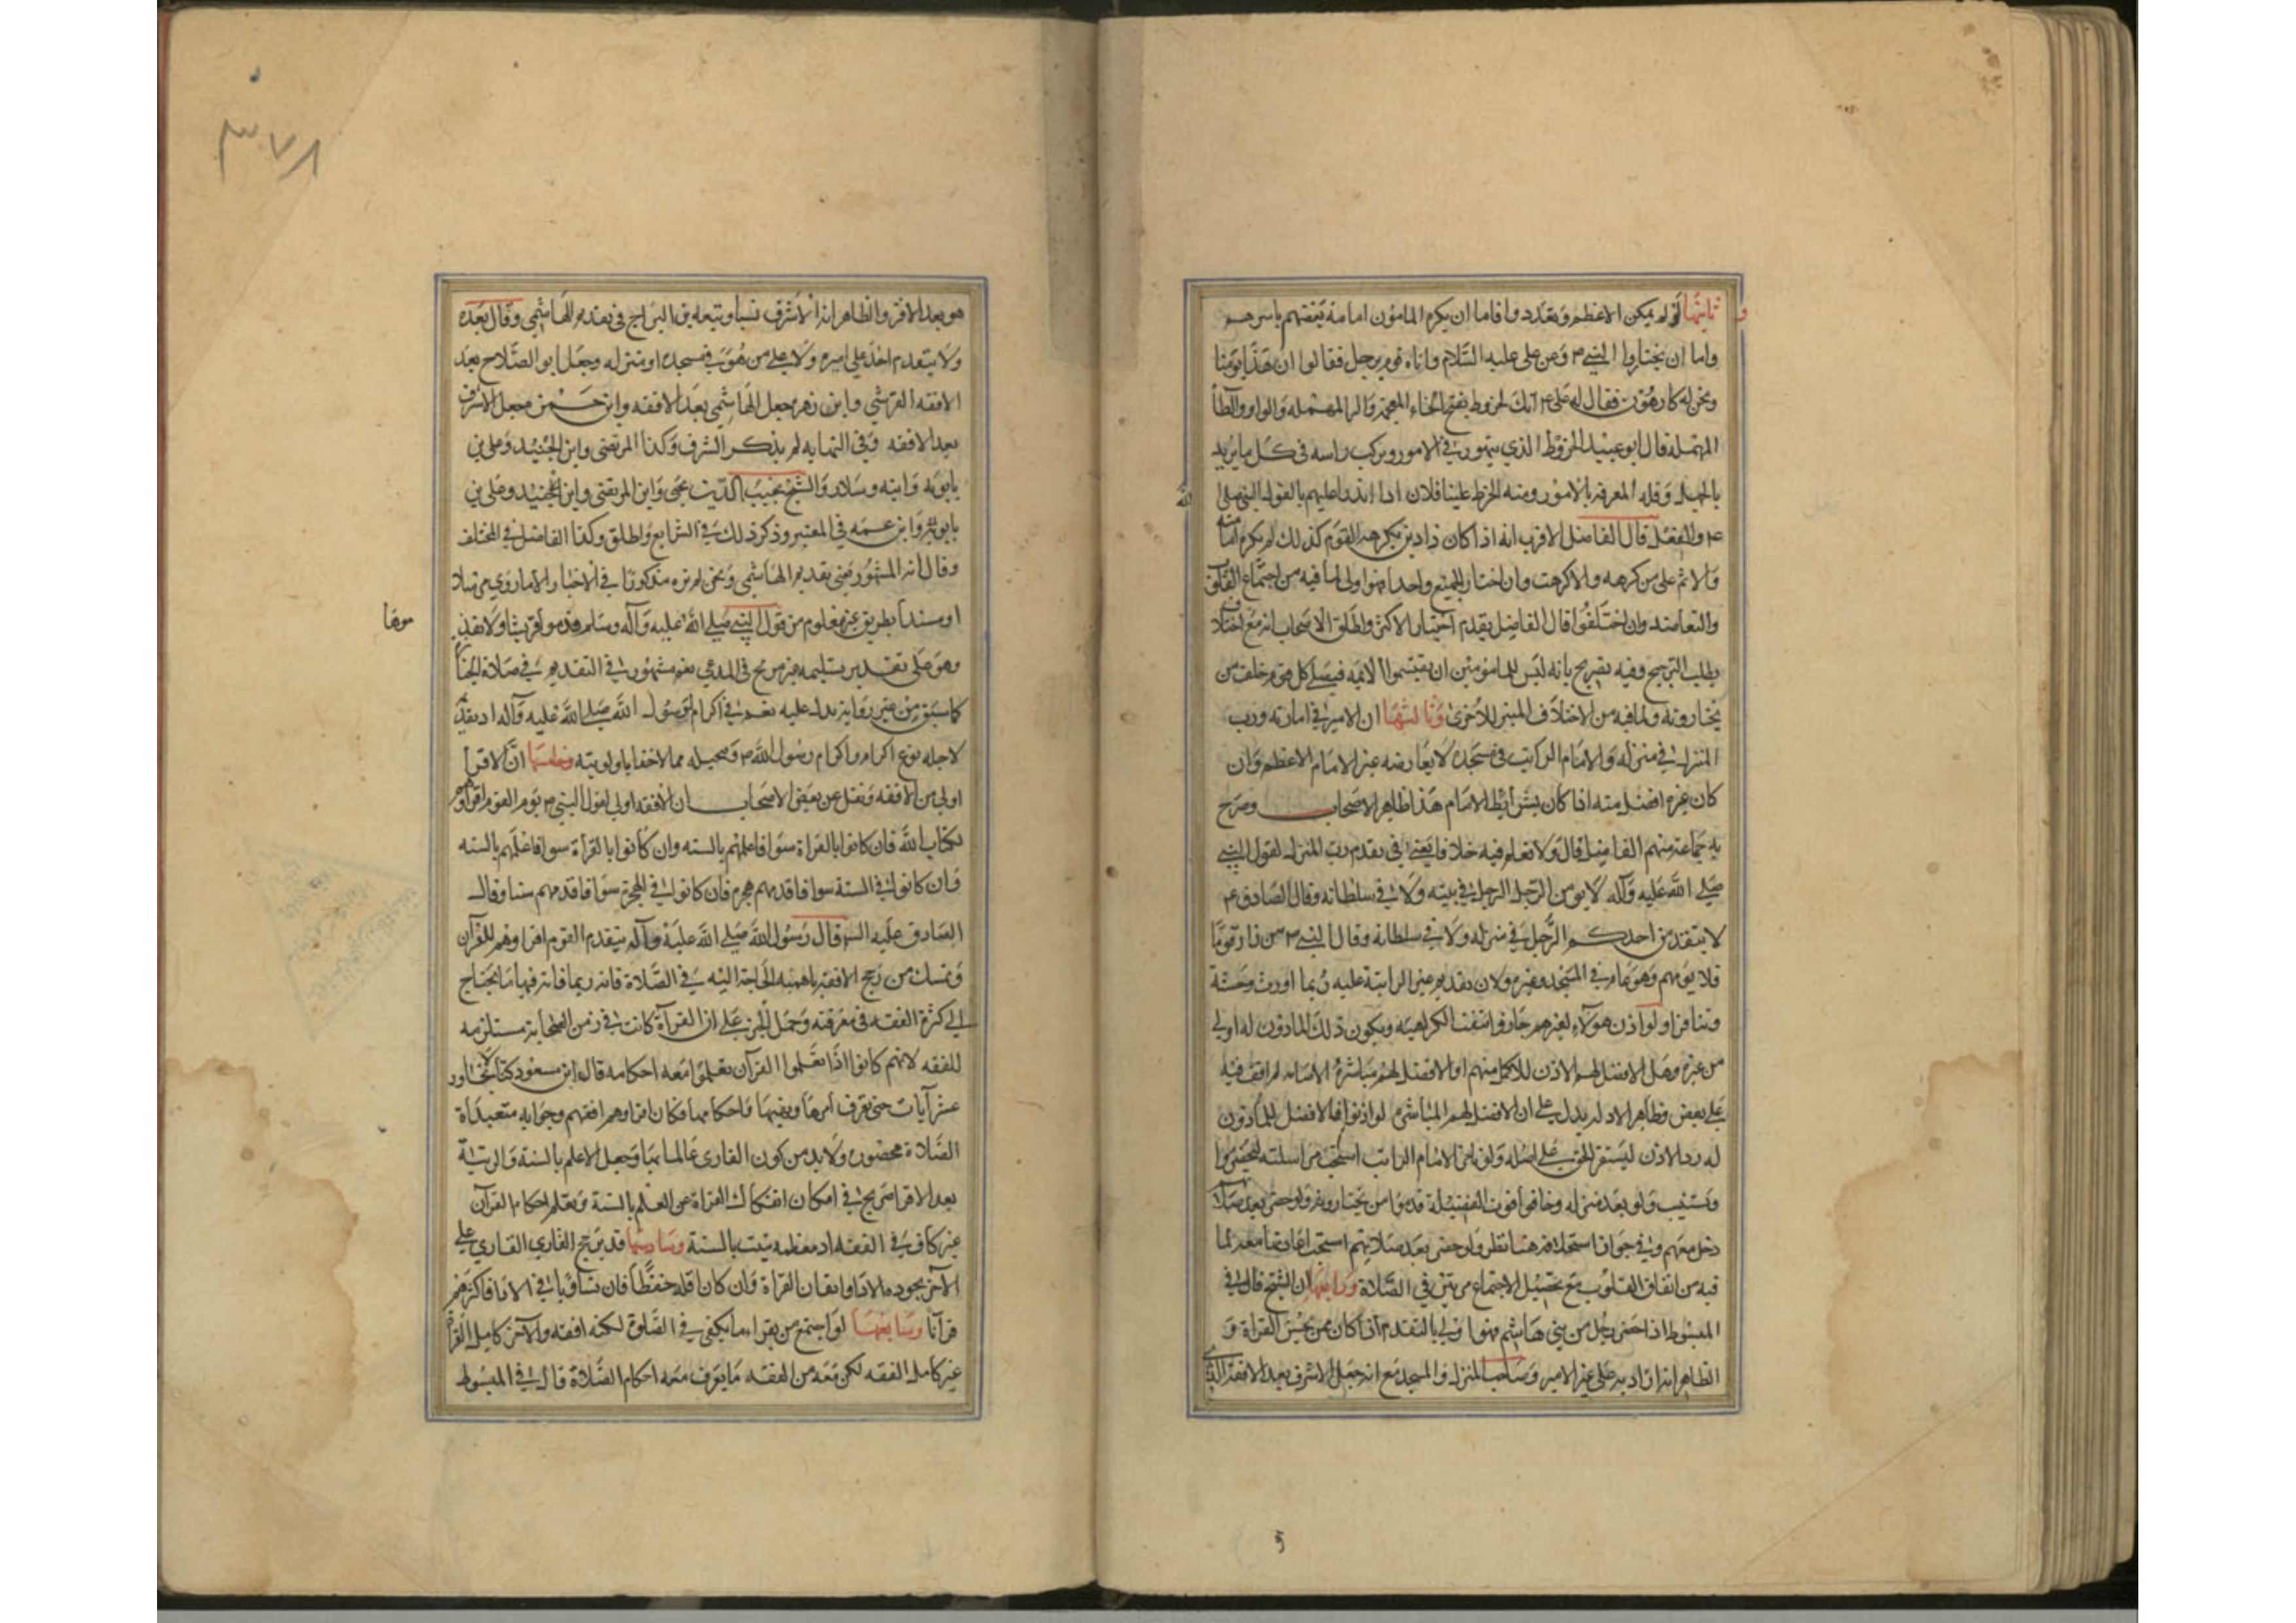 و ثانيها لو لم يكن الاعظم وتعدد وا فاما ان يكره المامون امامة بعضهم باسرهم
واما ان يختاروا النبي م وعن علي عليه السلام واتاه قوم برجل فقالوا ان هذا يؤمنا
ونحن له كارهون فقال له علي ع انك لخروط بفتح الخاء المعجمة والرا المهمله والواو والطا
المهملة قال ابو عبيد الخروط الذي يتهور في الامور ويركب راسه في كل ما يريد
بالجهل وقلة المعرفة بالامور ومنه الخرط علينا فلان اذا اندرا عليهم بالقول النبي صلى الله
ع والفعل قال الفاضل الاقرب انه اذا كان ذا دين فكرهه القوم كذلك لم يكره امامته
والاثم على من كرهه والا كرهت وان اختار الجميع واحدا فهو اولى لما فيه من اجتماع القلوب
والتعاضد وان اختلفوا قال الفاضل يقدم اختيار الاكثر واطلق الاصحاب انه مع اختلاف
يطلب الترجيح وفيه تصريح بانه ليس للمامومين ان يقتسموا الائمه فيصلي كل قوم خلف من
يختارونه ولما فيه من الاختلاف المبنى للاخرى وثالثها ان الامير في امارته ورب
المنزل في منزله والامام الراتب في مسجده لا يعارضه غير الامام الاعظم وان
كان غيره افضل منه اذا كان بشرائط الامام هذا ظاهر الاصحاب وصرح
به جماعة منهم الفاضل قال ولا نعلم فيه خلافا يعني في تقدم رب المنزل لقول النبي
صلى الله عليه وآله لا يؤمن الرجل الرجل في بيته ولا في سلطانه وقال الصادق ع
لا يتقدمن احدكم الرجل في منزله ولا في سلطانه وقال النبي م من زار قوما
فلا يؤمهم وهو عام في المسجد وغيره ولان تقديم غير الراتبة عليه ربما اورث وحشة
وتنافرا ولو اذن هولاء لغيرهم جاز وانتفت الكراهية ويكون ذلك الماذون له اولى
من غيره وهل الافضل لهم الاذن للاكمل منهم او الافضل لهم مباشرة الامامه لم اقف فيه
على بعض وظاهر الادله يدل على ان الافضل لهم المباشرة لو اذنوا فالافضل للماذون
له رد الاذن ليستقر الحق على اصله ولو تاخر الامام الراتب استحب مراسلته ليحضر او
ويستنيب ولو بعد منزله وخافوا فوت الفضيلة قدموا من يختارونه ولو حضر بعد صلا
دخل معهم وفي جواز استخلافه هنا نظر ولو حضر بعد صلاتهم استحب اعادتها معه لما
فيه من اتفاق القلوب مع تحصيل الاجتماع مرتين في الصلاة ورابعها ان الشيخ قال في
المبسوط اذا حضر رجل من بني هاشم فهو اولى بالتقدم اذا كان ممن يحسن القراة و
الظاهر انه اراد به على غير الامير وصاحب المنزل والمسجد مع انه جعل الاشرف بعد الافقه الذي
هو بعد الاقرا والظاهر انه الاشرف نسبا وتبعه ابن البراج في تقديم الهاشمي وقال بعده
ولا يتقدم احد على اميره ولا على من هو في مسجده او منزله وجعل ابو الصلاح بعد
الافقه القرشي وابن زهره جعل الهاشمي بعد الافقه وابن حمزه جعل الاشرف
بعد الافقه وفي النهايه لم يذكر الشرف وكذا المرتضى وابن الجنيد وعلي بن
بابويه وابنه وسلار والشيخ نجيب الدين يحيى وابن المرتضى وابن الجنيد وعلي بن
بابويه وابن عمه في المعتبر وذكر ذلك في الشرايع واطلق وكذا الفاضل في المختلف
وقال انه المشهور يعني تقديم الهاشمي ونحن لم نره مذكورا في الاخبار الا ما روي مرسلا
او مسندا بطريق غير معلوم من قول النبي صلى الله عليه وآله وسلم قدموا قريشا ولا تقدموها
وهو على تقدير تسليمه غير صريح في المدعي نعم مشهور في التقديم في صلاة الجنازة
كما سبق من غير رواية تدل عليه نعم في اكرام رسول الله صلى الله عليه وآله اذ تقديمه
لاجله نوع اكرام واكرام رسول الله م وتبجيله مما لا خفا باولويته وخامسها ان الاقرا
اولى من الافقه ونقل عن بعض الاصحاب ان الافقه اولى لقول النبي م يؤم القوم اقراهم
لكتاب الله فان كانوا بالقراة سوا فاعلمهم بالسنه وان كانوا بالقراة سوا فاعلمهم بالسنه
وان كانوا في السنة سوا فاقدمهم هجره فان كانوا في الهجرة سوا فاقدمهم سنا وقال
الصادق عليه السلم قال رسول الله صلى الله عليه وآله يتقدم القوم اقراوهم للقرآن
وتمسك من رجح الافقه باهميه الحاجة اليه في الصلاة فانه ربما فاته فيها ما يحتاج
الى كثرة الفقه في معرفته وحمل الخبر على ان القرآة كانت في زمن الصحابة مستلزمه
للفقه لانهم كانوا اذا تعلموا القرآن تعلموا معه احكامه قال ابن مسعود كنا لا نتجاوز
عشر آيات حتى نعرف امرها ونهيها واحكامها فكان اقراوهم افقههم وجوابه متعبدة
الصلاة محصوره ولابد من كون القارى عالما بها وجعل الاعلم بالسنة والمرتبة
بعد الاقرا صريح في امكان انفكاك القراة عن العلم بالسنة وتعلم احكام القرآن
غير كاف في الفقه اذ معظمه يثبت بالسنة وسادسها قد يرجح القاري القاري على
الآخر بجوده الادا واتقان القراة وان كان اقله حفظا فان تساويا في الادا فاكثرهم
قرآنا وسابعها لو اجتمع من يقراء ما يكفي في الصلوة لكنه افقه والآخر كامل القراة
غير كامل الفقه لكن معه من الفقه ما يعرف معه احكام الصلاة قال في المبسوط
٣٧٨